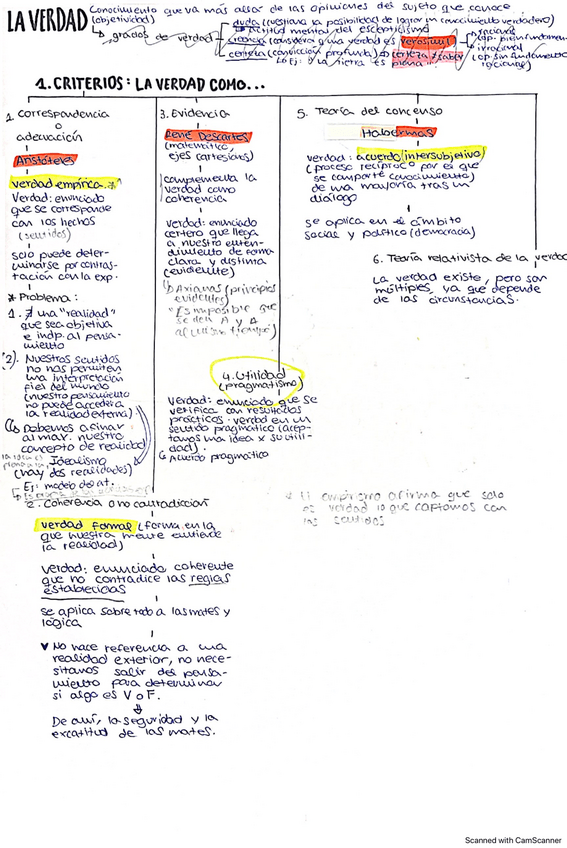 LA VERDAD
Conocimiento que va más allá de las opiniones del sujeto que conoce
(objetividad)
grados de verdad
duda (cuestiona la posibilidad de lograr un conocimiento verdadero)
actitud mental del escepticismo
creencia (considera q una verdad es verosímil)
racional
(op. bien fundamen.
irracional
(op. sin fundamentos
certeza (convicción profunda) certeza ≠ saber
Ej: la tierra es plana
1. CRITERIOS: LA VERDAD COMO...
1. Correspondencia
o
adecuación
Aristóteles
verdad empírica *
Verdad: enunciado
que se corresponde
con los hechos
(sentidos)
solo puede deter-
minarse por contras-
tación con la exp.
* Problema:
1. ∄ una "realidad"
que sea objetiva
e indp. al pensa-
miento
2). Nuestros sentidos
no nos permiten
una interpretación
fiel del mundo
(nuestro pensamiento
no puede acceder a
la realidad externa)
Debemos afinar
al max. nuestro
concepto de realidad
Idealismo
(hay dos realidades)
Ej: modelo de at.
2. Coherencia o no contradicción
verdad formal (forma en la
que nuestra mente entiende
la realidad)
Verdad: enunciado coherente
que no contradice las reglas
establecidas
se aplica sobre todo a las mates y
lógica
No hace referencia a una
realidad exterior, no nece-
sitamos salir del pensa-
miento para determinar
si algo es V o F.
De ahí, la seguridad y la
exactitud de las mates.
3. Evidencia
René Descartes
(matemático,
ejes cartesianos)
complementa la
verdad como
coherencia
Verdad: enunciado
certero que llega
a nuestro enten-
dimiento de forma
clara y distinta
(evidente)
Axiomas (principios
evidentes)
"Es imposible que
se den A y A
al mismo tiempo"
4. Utilidad
(pragmatismo)
Verdad: enunciado que se
verifica con resultados
prácticos. verdad en un
sentido pragmático (acep-
tamos una idea x su utili-
dad).
Acuerdo pragmático
5. Teoría del concenso
Habermas
verdad: acuerdo intersubjetivo
(proceso recíproco por el que
se comparte conocimiento)
de una mayoría tras un
diálogo
se aplica en el ámbito
social y político (democracia)
6. Teoría relativista de la verdad
La verdad existe, pero son
múltiples, ya que depende
de las circunstancias.
* El empirismo afirma que solo
es verdad lo que captamos con
los sentidos
Scanned with CamScanner